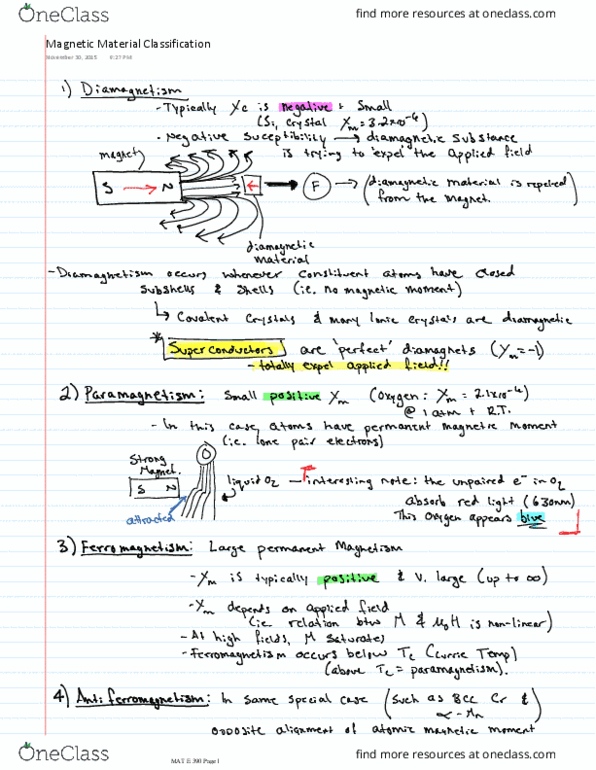 OneClass
find more resources at oneclass.com
Magnetic Material Classification
November 30, 2015 8:27 PM
1) Diamagnetism
- Typically Xc is negative & small
(Si, crystal Xm = 3.2x10^-6)
- Negative Suceptibility → diamagnetic substance
is trying to 'expel' the applied field
magnet
S → N
F → (diamagnetic material is repelled
from the magnet.)
diamagnetic
material
- Diamagnetism occurs whenever constituent atoms have closed
subshells & shells (i.e. no magnetic moment)
↳ Covalent crystals & many Ionic crystals are diamagnetic
* Superconductors are 'perfect' diamagnets (Xm = -1)
- totally expel applied field!!
2) Paramagnetism: Small positive Xm (oxygen: Xm = 2.1x10^-6)
@ 1 atm + R.T.
- In this case, atoms have permanent magnetic moment
(i.e. lone pair electrons)
Strong
Magnet.
S N
attracted
liquid O2
interesting note: the unpaired e- in O2
absorb red light (630nm)
This Oxygen appears blue
3) Ferromagnetism: Large permanent Magnetism
- Xm is typically positive & v. large (up to ∞)
- Xm depends on applied field
(i.e. relation btw M & μ0H is non-linear)
- At high fields, M saturates
- Ferromagnetism occurs below Tc (Currie Temp)
(above Tc = paramagnetism).
4) Anti ferromagnetism: In same special case (such as BCC Cr &
α-Mn)
opposite alignment of atomic magnetic moment
MAT E 390 Page 1
OneClass
find more resources at oneclass.com